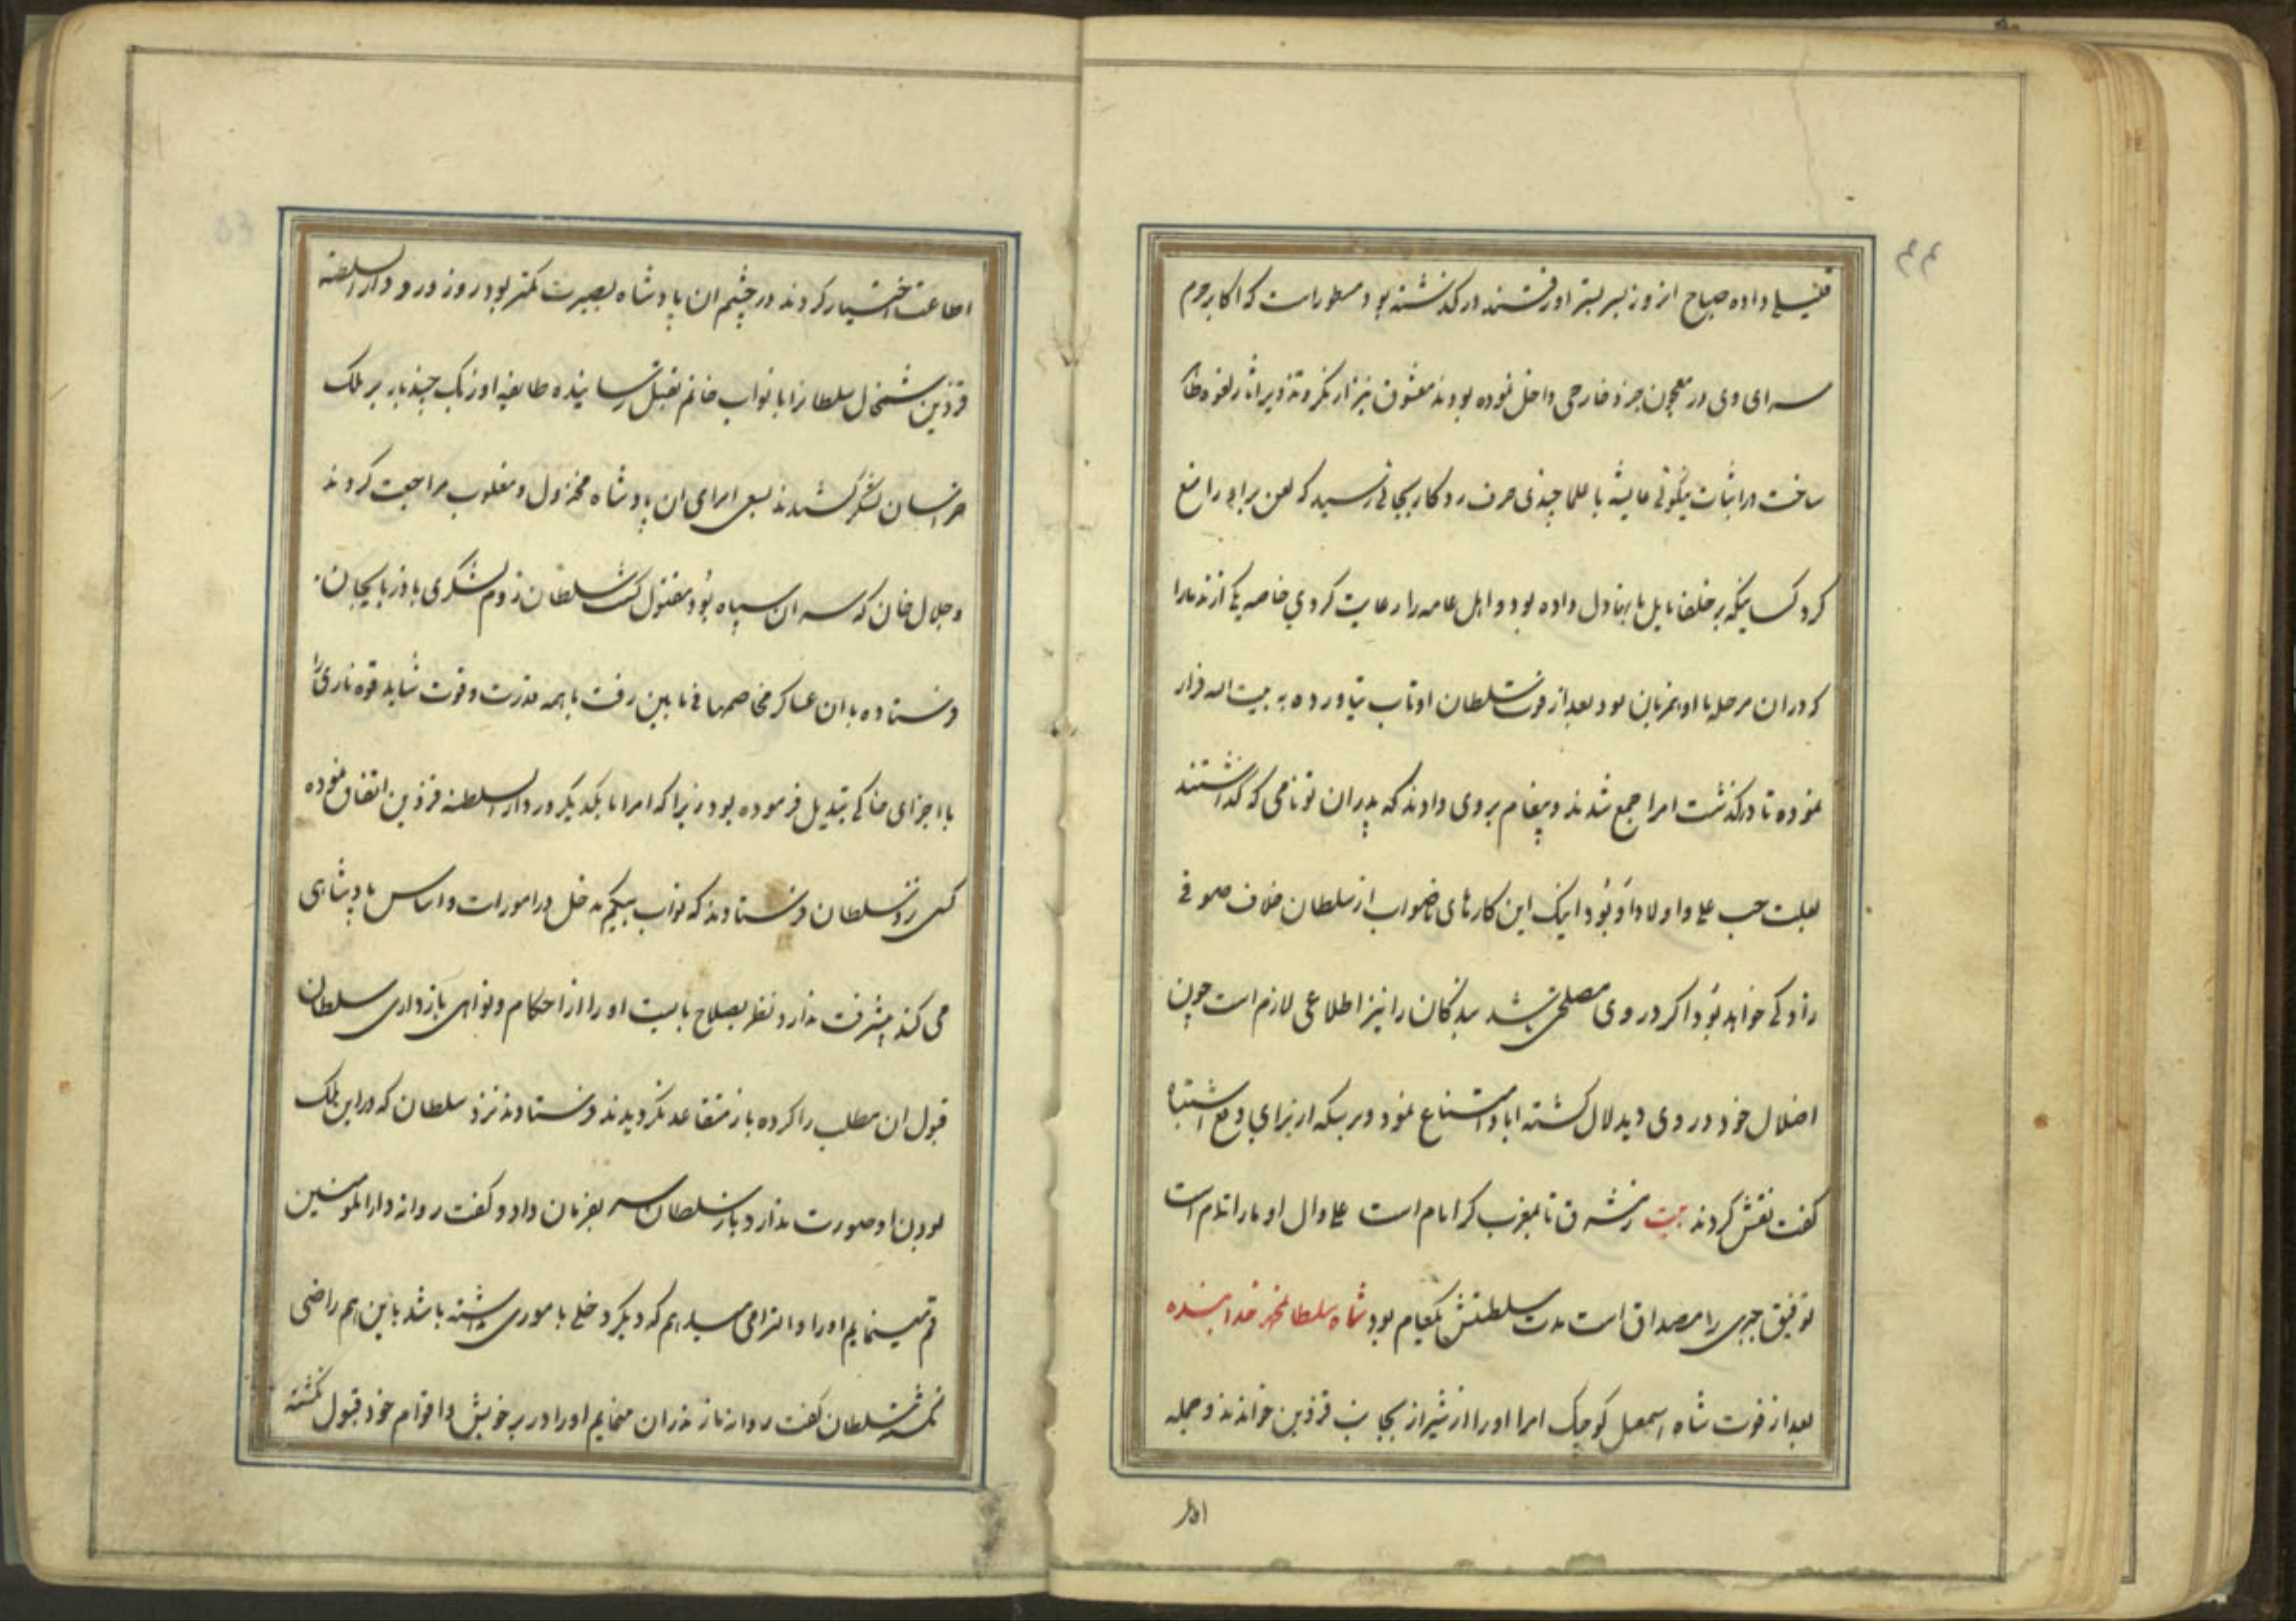 ۴۴
داده صباح انروز بسر بستر او رفتند در کذشته بود مسطور است که اکابر حرم
سرای وی در معجون جزو خارجی داخل نموده بودند معشوق نیز
ساخت در اثبات نیکوئی عایشه با علما چندی حرف زد کار بجائی رسید که لعن برابر را منع
کرد کسانیکه بر خلفا مایل باینها دل داده بود و اهل عامه را رعایت کردی خاصه
که دران مرحله با او همزبان بود بعد از فوت سلطان او تاب نیاورده به بیت اله فرار
نموده تا درکذشت امرا جمع شدند و پیغام بروی دادند که پدران تو نامی که کذاشتند
بعلت حب علی و اولاد او بود اینک این کارهای ناصواب از سلطان خلاف صوفی
زادکی خواهد بود اکر در وی مصلحتی باشد بندکان را نیز اطلاعی لازم است چون
اضلال خود در وی دید لال کشته ابا و امتناع نمود و بر سکه از برای رفع اشتباه
کفت نقش کردند بیت ز مشرق تا بمغرب کر امام است علی و ال او ما را تمام است
توفیق جبری را مصداق است مدت سلطنتش یکعام بود شاه سلطانمحمد خدابنده
بعد از فوت شاه اسمعیل کوچک امرا او را از شیراز بجانب قزوین خواندند و جمله
اطاعت
اطاعت اختیار کردند در چشم ان پادشاه بصیرت کمتر بود روز ورود دارالسلطنه
قزوین شمخال سلطانرا با نواب خانم بقتل رسانیده طایفه اوزبک چند بار بر ملک
خراسان لشکر کشیدند بسعی امرای ان پادشاه مخذول و مغلوب مراجعت کردند
و جلال خان که سر ان سپاه بود مقتول کشت سلطان روم لشکری باذربایجان
فرستاده با ان عساکر مخاصمها فی مابین رفت با همه قدرت و قوت شاید قوه ناری را
با اجزای خاکی تبدیل فرموده بود زیرا که امرا با یکدیکر در دارالسلطنه قزوین اتفاق نموده
کسی نزد سلطان فرستادند که نواب بیکم که خلل در امورات و اساس پادشاهی
می کند پیشرفت ندارد نظر بصلاح بایست او را از احکام و نواهی بازداری سلطان
قبول ان مطلب را کرده باز متقاعد نکردیدند فرستادند نزد سلطان که در این ملک
بودن او صورت ندارد باز سلطان سر بفرمان داد و کفت روانه دارالمومنین
قم مینمایم او را و التزامی میدهم که دیکر دخلی با موری داشته باشد باین هم راضی
نکشته سلطان کفت روانه مازندران مینمایم او را در بر خویش و اقوام خود قبول نکشته